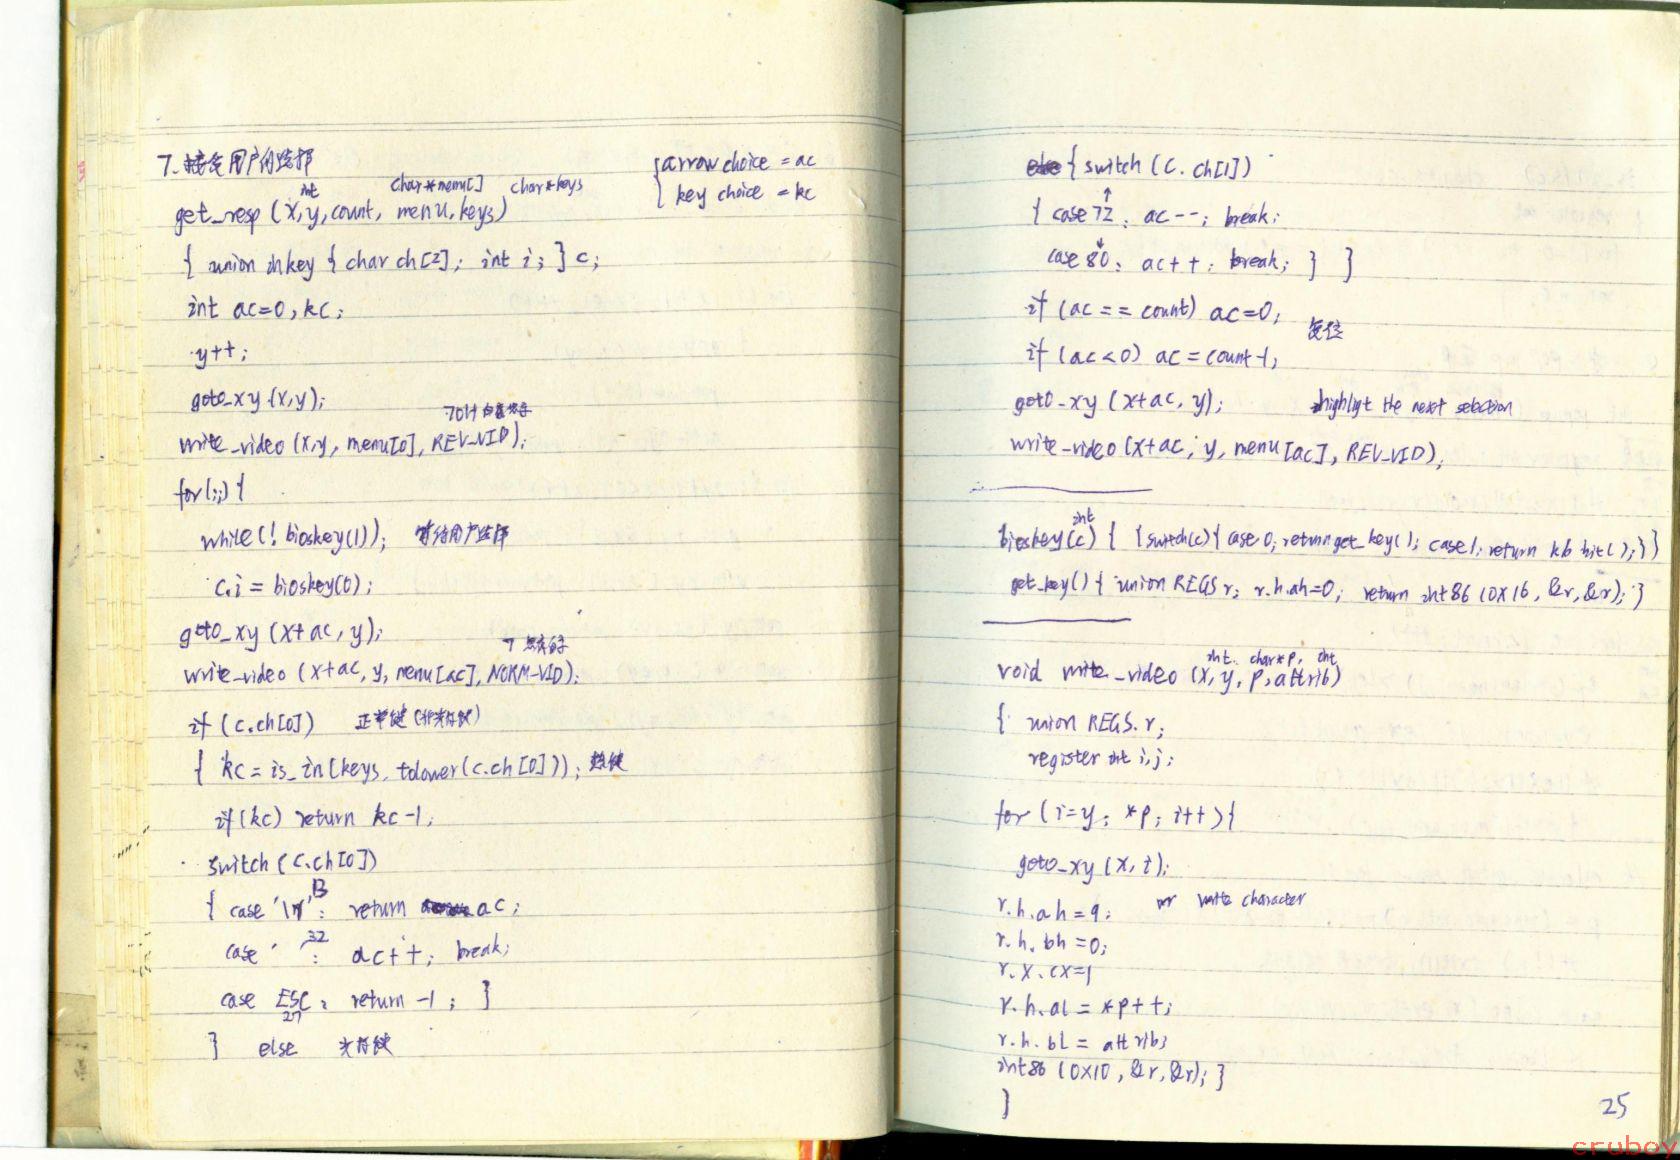 7. 接受用户的选择
{arrow choice = ac
{key choice = kc
int char*menu[] char*keys
get_resp (x,y,count, menu,keys)
{ union inkey { char ch[2]; int i; } c;
int ac=0, kc;
y++;
goto_xy (x,y);
70H
write_video (x,y, menu[0], REV_VID);
for(;;) {
while(! bioskey(1)); 等待用户选择
c.i = bioskey(0);
goto_xy (x+ac, y);
7
write_video (x+ac, y, menu[ac], NORM_VID);
if (c.ch[0]) 正常键(非光标键)
{ kc = is_in(keys, tolower(c.ch[0])); 热键
if(kc) return kc-1;
switch (c.ch[0])
{ case '\r': 13 return ac;
case ' ': 32 ac++; break;
case ESC: return -1; }
27
} else 光标键
{ switch (c.ch[1])
↑
{ case 72: ac--; break;
↓
case 80: ac++; break; } }
if (ac == count) ac=0;
复位
if (ac<0) ac = count-1;
goto_xy (x+ac, y); highligt the next selection
write_video (x+ac, y, menu[ac], REV_VID);
int
bioskey(c) { {switch(c){ case 0; return get_key(); case 1; return kb hit(); } }
get_key() { union REGS r; r.h.ah=0; return int86 (0X16, &r,&r); }
int char*p, int
void write_video (x, y, p, attrib)
{ union REGS. r;
register int i,j;
for (i=y; *p; i++){
goto_xy (x, i);
r.h.ah = 9; write character
r.h. bh = 0;
r.x.cx=1
r.h.al = *p++;
r.h.bl = attrib;
int86 (0X10, &r,&r); }
}
25
cruboy